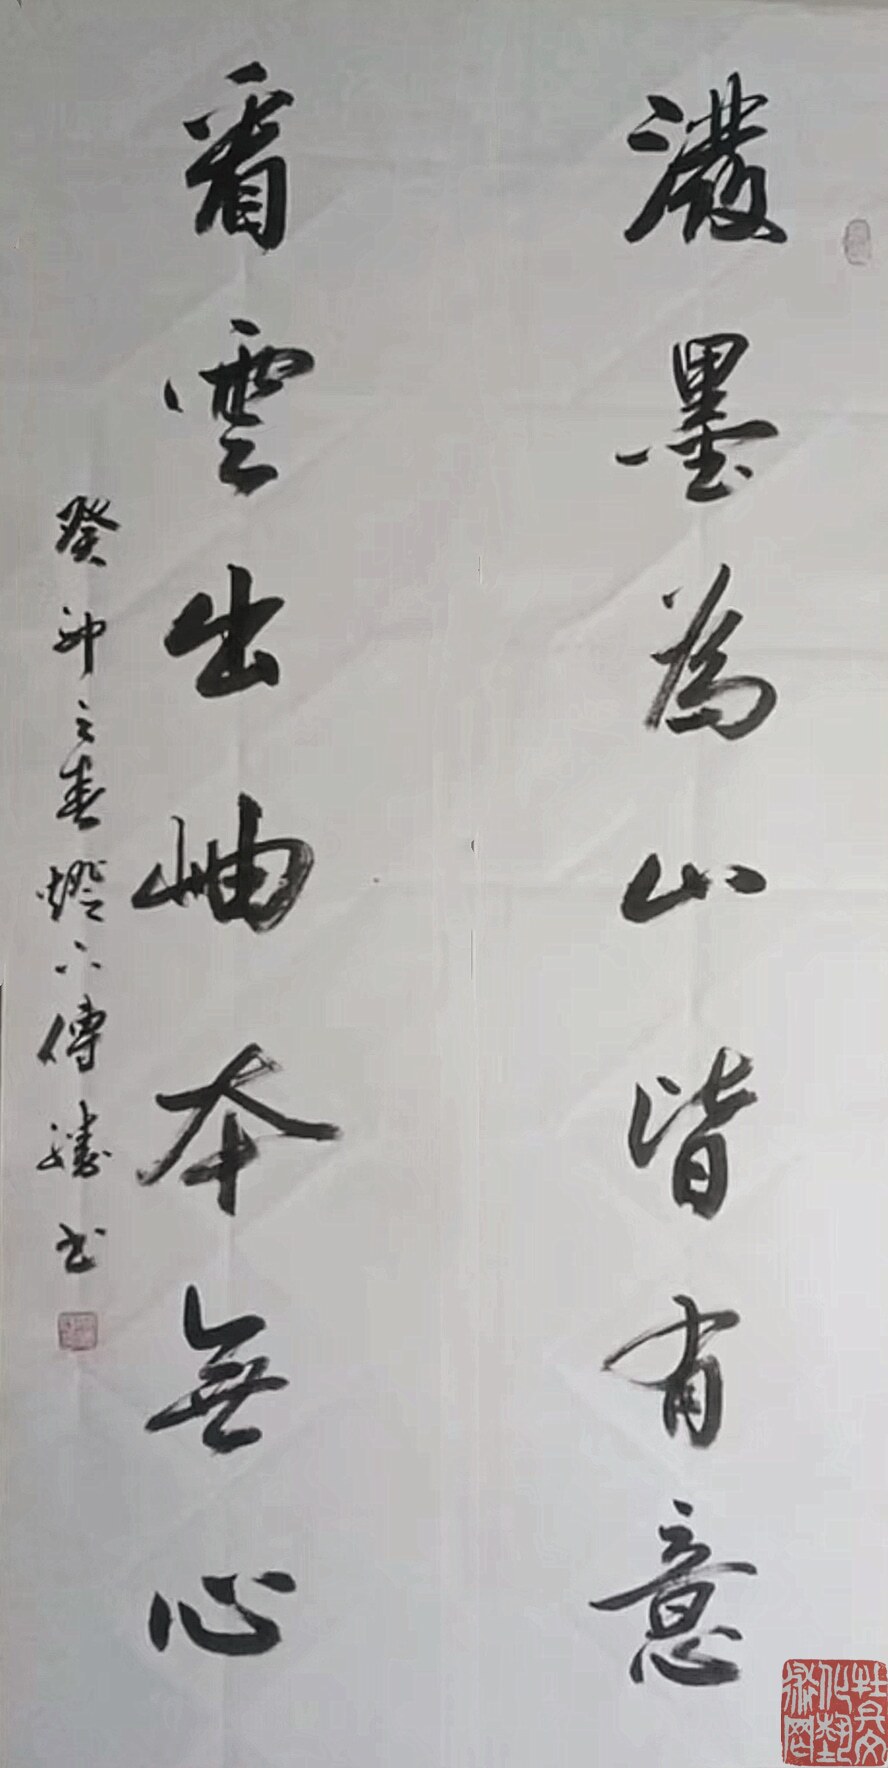 潑墨為山皆有意
看雲出岫本無心
癸卯之春燈下傳勝書